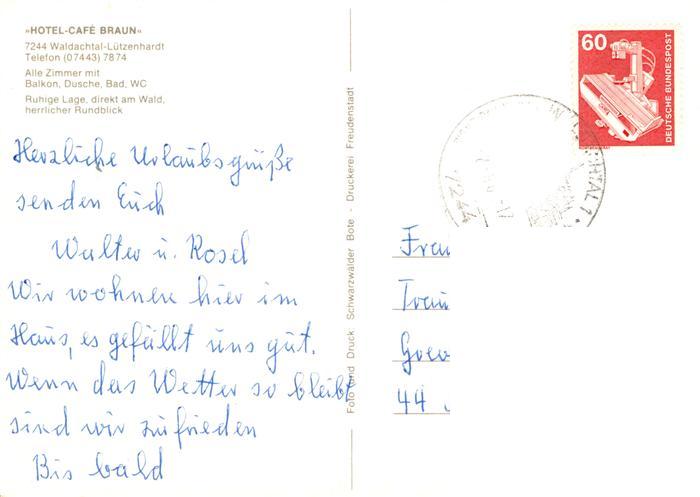 »HOTEL-CAFÉ BRAUN«
7244 Waldachtal-Lützenhardt
Telefon (07443) 7874
Alle Zimmer mit
Balkon, Dusche, Bad, WC
Ruhige Lage, direkt am Wald,
herrlicher Rundblick
Herzliche Urlaubsgrüße
senden Euch
Walter u. Rosel
Wir wohnen hier im
Haus, es gefällt uns gut.
Wenn das Wetter so bleibt
sind wir zufrieden
Bis bald
Foto und Druck · Schwarzwälder Bote · Druckerei Freudenstadt
60
DEUTSCHE BUNDESPOST
7244
Frau
44